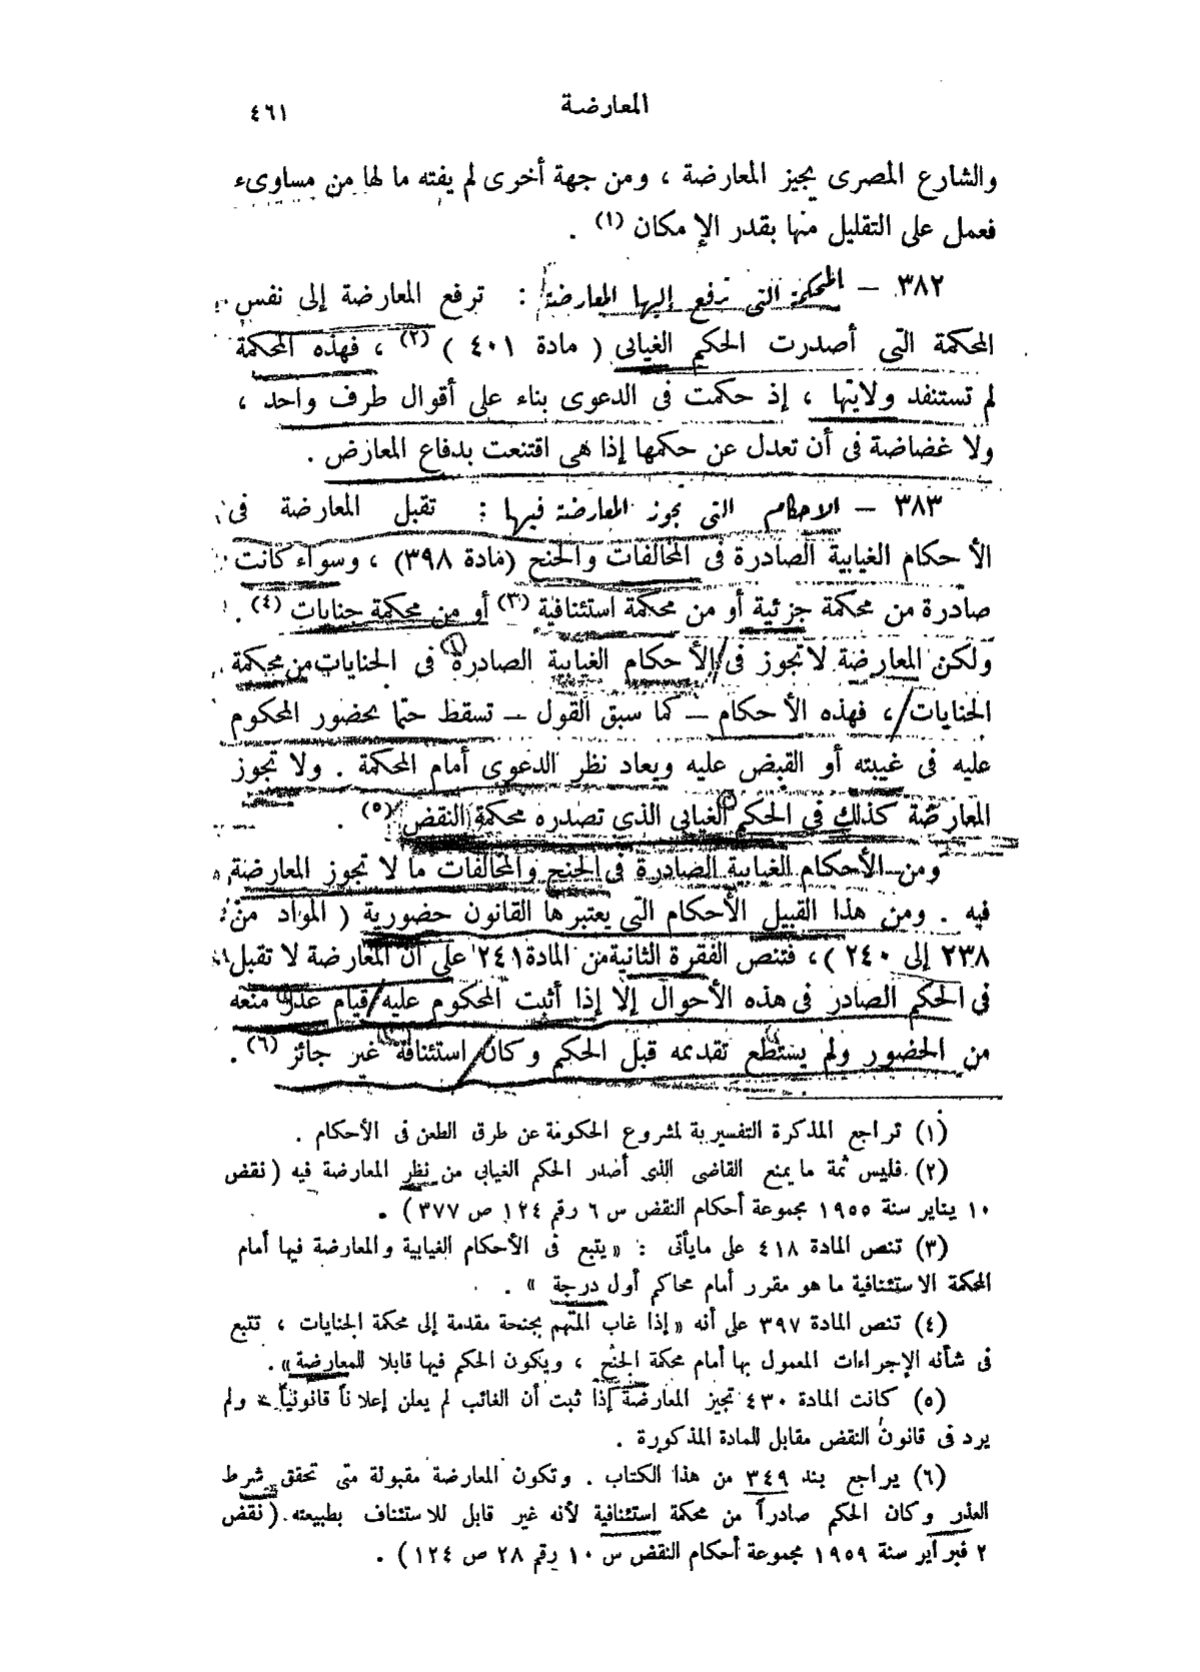 المعارضة
٤٦١
والشارع المصرى يجيز المعارضة ، ومن جهة أخرى لم يفته ما لها من مساوىء
فعمل على التقليل منها بقدر الإمكان (١) .
٣٨٢ – المحكمة التى ترفع إليها المعارضة : ترفع المعارضة إلى نفس
المحكمة التى أصدرت الحكم الغيابى ( مادة ٤٠١ ) (٢) ، فهذه المحكمة
لم تستنفد ولايتها ، إذ حكمت فى الدعوى بناء على أقوال طرف واحد ،
ولا غضاضة فى أن تعدل عن حكمها إذا هى اقتنعت بدفاع المعارض .
٣٨٣ – الاحكام التى تجوز المعارضة فيها : تقبل المعارضة فى
الأحكام الغيابية الصادرة فى المخالفات والجنح (مادة ٣٩٨) ، وسواء كانت
صادرة من محكمة جزئية أو من محكمة استئنافية (٣) أو من محكمة جنايات (٤) .
ولكن المعارضة لا تجوز فى الأحكام الغيابية الصادرة فى الجنايات من محكمة
الجنايات ، فهذه الأحكام – كما سبق القول – تسقط حتما بحضور المحكوم
عليه فى غيبته أو القبض عليه ويعاد نظر الدعوى أمام المحكمة . ولا تجوز
المعارضة كذلك فى الحكم الغيابى الذى تصدره محكمة النقض (٥) .
ومن الأحكام الغيابية الصادرة فى الجنح والمخالفات ما لا تجوز المعارضة
فيه . ومن هذا القبيل الأحكام التى يعتبرها القانون حضورية ( المواد من
٢٣٨ إلى ٢٤٠ ) ، فتنص الفقرة الثانية من المادة ٢٤١ على أن المعارضة لا تقبل
فى الحكم الصادر فى هذه الأحوال إلا إذا أثبت المحكوم عليه قيام عذر منعه
من الحضور ولم يستطع تقديمه قبل الحكم وكان استئنافه غير جائز (٦) .
(١) تراجع المذكرة التفسيرية لمشروع الحكومة عن طرق الطعن فى الأحكام .
(٢) فليس ثمة ما يمنع القاضى الذى أصدر الحكم الغيابى من نظر المعارضة فيه ( نقض
١٠ يناير سنة ١٩٥٥ مجموعة أحكام النقض س ٦ رقم ١٢٤ ص ٣٧٧ ) .
(٣) تنص المادة ٤١٨ على مايأتى : « يتبع فى الأحكام الغيابية والمعارضة فيها أمام
المحكمة الاستئنافية ما هو مقرر أمام محاكم أول درجة » .
(٤) تنص المادة ٣٩٧ على أنه « إذا غاب المتهم بجنحة مقدمة إلى محكمة الجنايات ، تتبع
فى شأنه الإجراءات المعمول بها أمام محكمة الجنح ، ويكون الحكم فيها قابلا للمعارضة » .
(٥) كانت المادة ٤٣٠ تجيز المعارضة إذا ثبت أن الغائب لم يعلن إعلاناً قانونياً ، ولم
يرد فى قانون النقض مقابل للمادة المذكورة .
(٦) يراجع بند ٣٤٩ من هذا الكتاب . وتكون المعارضة مقبولة متى تحقق شرط
العذر وكان الحكم صادراً من محكمة استئنافية لأنه غير قابل للاستئناف بطبيعته ( نقض
٢ فبراير سنة ١٩٥٩ مجموعة أحكام النقض س ١٠ رقم ٢٨ ص ١٢٤ ) .